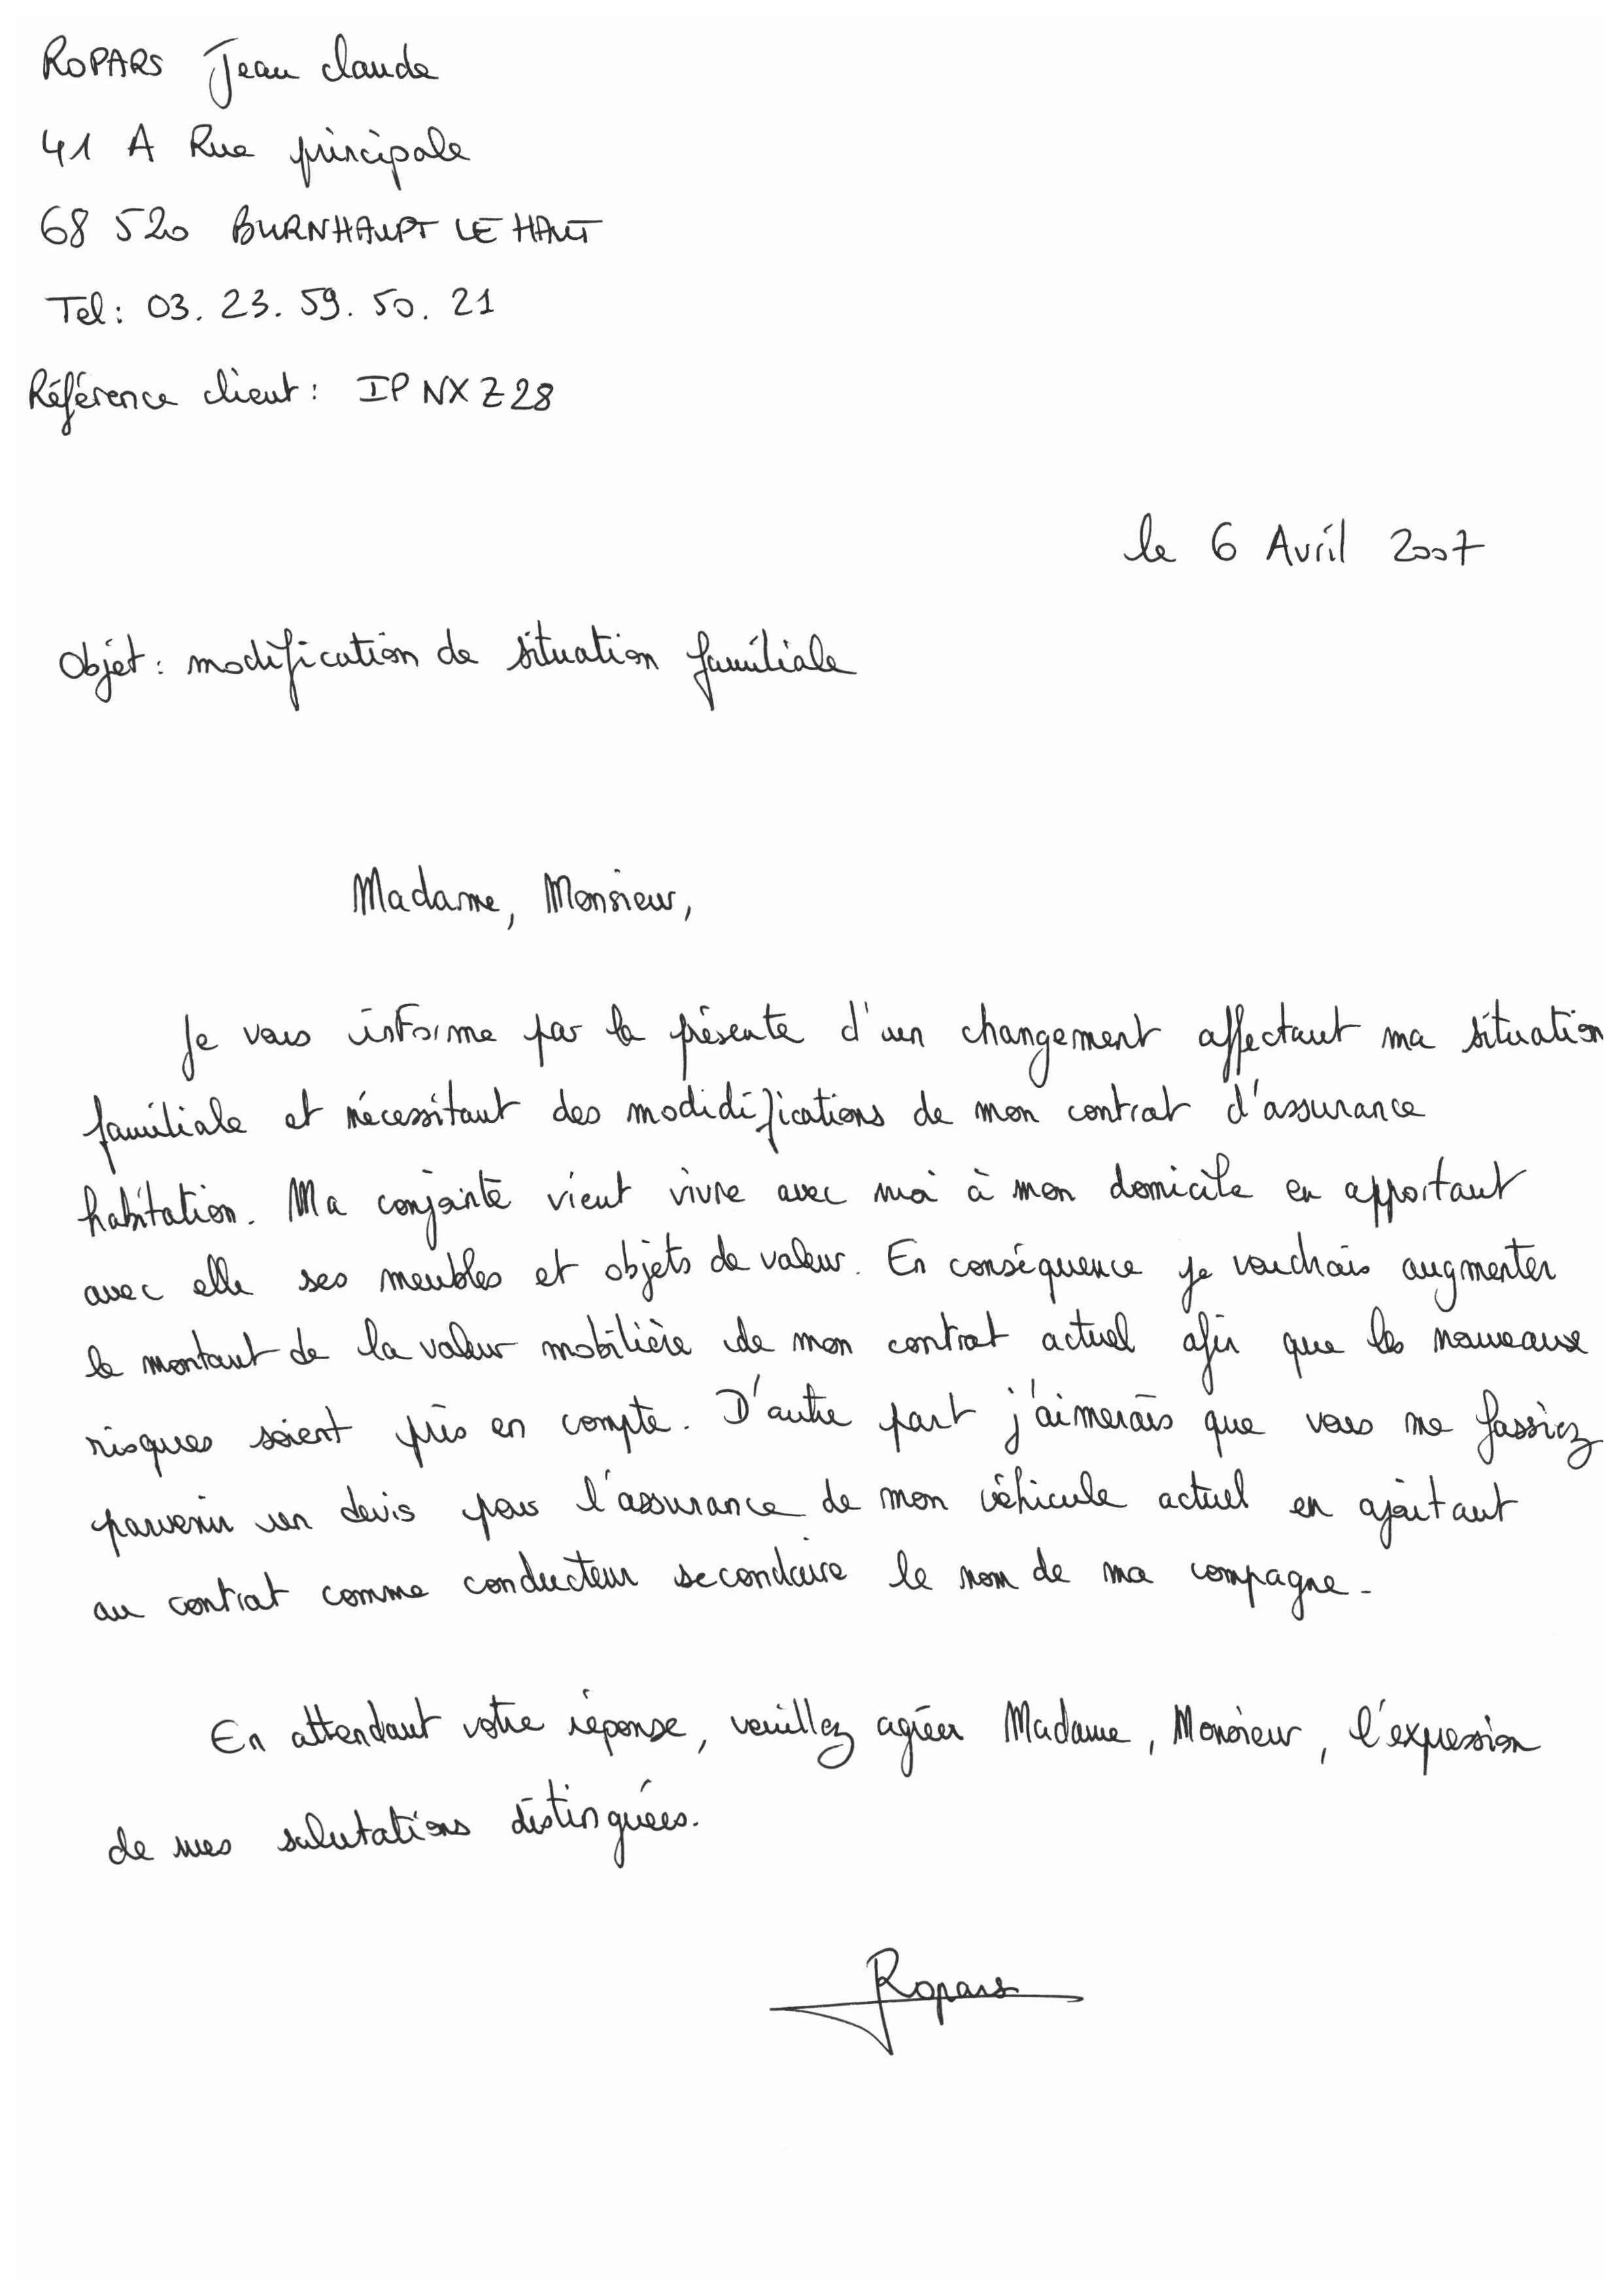 ROPARS Jean claude
41 A Rue principale
68 520 BURNHAUPT LE HAUT
Tel: 03. 23. 59. 50. 21
Référence client: IPNXZ28
le 6 Avril 2007
Objet: modification de situation familiale
Madame, Monsieur,
Je vous informe par la présente d'un changement affectant ma situation
familiale et nécessitant des modidifications de mon contrat d'assurance
habitation. Ma conjointe vient vivre avec moi à mon domicile en apportant
avec elle ses meubles et objets de valeur. En conséquence je voudrais augmenter
le montant de la valeur mobilière de mon contrat actuel afin que les nouveaux
risques soient pris en compte. D'autre part j'aimerais que vous me fassiez
parvenir un devis pour l'assurance de mon véhicule actuel en ajoutant
au contrat comme conducteur secondaire le nom de ma compagne.
En attendant votre réponse, veuillez agréer Madame, Monsieur, l'expression
de mes salutations distinguées.
Ropars